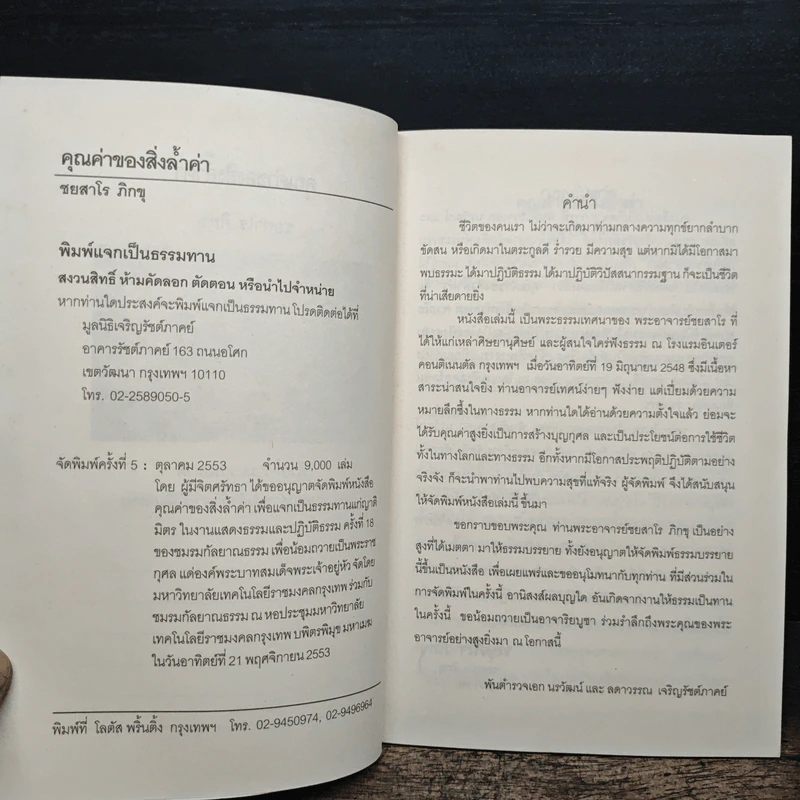 คุณค่าของสิ่งล้ำค่า
ชยสาโร ภิกขุ
พิมพ์แจกเป็นธรรมทาน
สงวนสิทธิ์ ห้ามคัดลอก ตัดตอน หรือนำไปจำหน่าย
หากท่านใดประสงค์จะพิมพ์แจกเป็นธรรมทาน โปรดติดต่อได้ที่
มูลนิธิเจริญรัชต์ภาคย์
อาคารรัชต์ภาคย์ 163 ถนนอโศก
เขตวัฒนา กรุงเทพฯ 10110
โทร. 02-2589050-5
จัดพิมพ์ครั้งที่ 5 : ตุลาคม 2553 จำนวน 9,000 เล่ม
โดย ผู้มีจิตศรัทธา ได้ขออนุญาตจัดพิมพ์หนังสือ
คุณค่าของสิ่งล้ำค่า เพื่อแจกเป็นธรรมทานแก่ญาติ
มิตร ในงานแสดงธรรมและปฏิบัติธรรม ครั้งที่ 18
ของชมรมกัลยาณธรรม เพื่อน้อมถวายเป็นพระราช
กุศล แด่องค์พระบาทสมเด็จพระเจ้าอยู่หัว จัดโดย
มหาวิทยาลัยเทคโนโลยีราชมงคลกรุงเทพ ร่วมกับ
ชมรมกัลยาณธรรม ณ หอประชุมมหาวิทยาลัย
เทคโนโลยีราชมงคลกรุงเทพ บพิตรพิมุข มหาเมฆ
ในวันอาทิตย์ที่ 21 พฤศจิกายน 2553
พิมพ์ที่ โลตัส พริ้นติ้ง กรุงเทพฯ โทร. 02-9450974, 02-9496964
คำนำ
ชีวิตของคนเรา ไม่ว่าจะเกิดมาท่ามกลางความทุกข์ยากลำบาก
ขัดสน หรือเกิดมาในตระกูลดี ร่ำรวย มีความสุข แต่หากมิได้มีโอกาสมา
พบธรรมะ ได้มาปฏิบัติธรรม ได้มาปฏิบัติวิปัสสนากรรมฐาน ก็จะเป็นชีวิต
ที่น่าเสียดายยิ่ง
หนังสือเล่มนี้ เป็นพระธรรมเทศนาของ พระอาจารย์ชยสาโร ที่
ได้ให้แก่เหล่าศิษยานุศิษย์ และผู้สนใจใคร่ฟังธรรม ณ โรงแรมอินเตอร์
คอนติเนนตัล กรุงเทพฯ เมื่อวันอาทิตย์ที่ 19 มิถุนายน 2548 ซึ่งมีเนื้อหา
สาระน่าสนใจยิ่ง ท่านอาจารย์เทศน์ง่ายๆ ฟังง่าย แต่เปี่ยมด้วยความ
หมายลึกซึ้งในทางธรรม หากท่านใดได้อ่านด้วยความตั้งใจแล้ว ย่อมจะ
ได้รับคุณค่าสูงยิ่งเป็นการสร้างบุญกุศล และเป็นประโยชน์ต่อการใช้ชีวิต
ทั้งในทางโลกและทางธรรม อีกทั้งหากมีโอกาสประพฤติปฏิบัติตามอย่าง
จริงจัง ก็จะนำพาท่านไปพบความสุขที่แท้จริง ผู้จัดพิมพ์ จึงได้สนับสนุน
ให้จัดพิมพ์หนังสือเล่มนี้ ขึ้นมา
ขอกราบขอบพระคุณ ท่านพระอาจารย์ชยสาโร ภิกขุ เป็นอย่าง
สูงที่ได้เมตตา มาให้ธรรมบรรยาย ทั้งยังอนุญาตให้จัดพิมพ์ธรรมบรรยาย
นี้ขึ้นเป็นหนังสือ เพื่อเผยแพร่และขออนุโมทนากับทุกท่าน ที่มีส่วนร่วมใน
การจัดพิมพ์ในครั้งนี้ อานิสงส์ผลบุญใด อันเกิดจากงานให้ธรรมเป็นทาน
ในครั้งนี้ ขอน้อมถวายเป็นอาจาริยบูชา ร่วมรำลึกถึงพระคุณของพระ
อาจารย์อย่างสูงยิ่งมา ณ โอกาสนี้
พันตำรวจเอก นรวัฒน์ และ ลดาวรรณ เจริญรัชต์ภาคย์